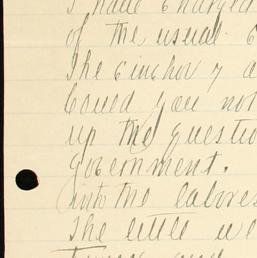 I have charged
of the usual
The anchor &
Could you not
up the questio
government.
into the labores
The little we